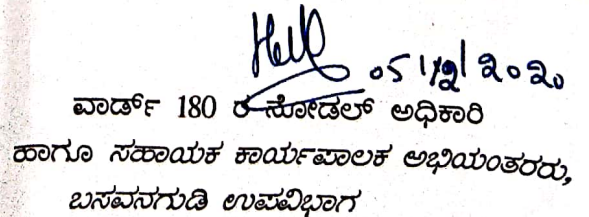 ೦೫/೧೨/೨೦೨೦
ವಾರ್ಡ್ 180 ರ ನೋಡಲ್ ಅಧಿಕಾರಿ
ಹಾಗೂ ಸಹಾಯಕ ಕಾರ್ಯಪಾಲಕ ಅಭಿಯಂತರರು,
ಬಸವನಗುಡಿ ಉಪವಿಭಾಗ